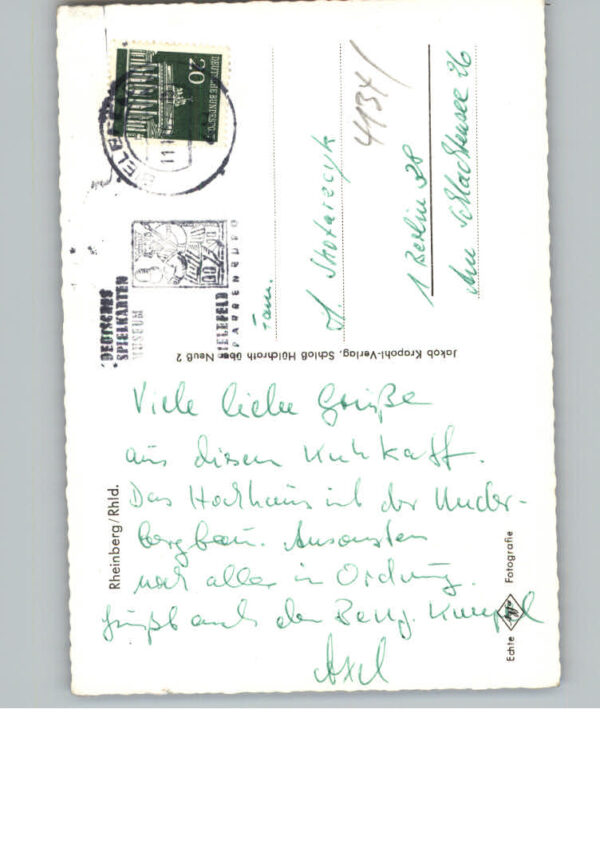 Rheinberg/Rhld.
Viele liebe Grüße
aus diesem Kuhkaff.
Das Hochhaus ist der Under-
bergbau. Ansonsten
noch alles in Ordnung.
Grüßt auch den
Axel
Echte Agfa Fotografie
Jakob Kropohl-Verlag, Schloß Hülchrath über Neuß 2
DEUTSCHES
SPIELKARTEN
MUSEUM
BIELEFELD
SPARRENBURG
BIELEFELD
20
DEUTSCHE BUNDESPOST
Fam.
1 Berlin 38
Am Schlachtensee 26
4134/